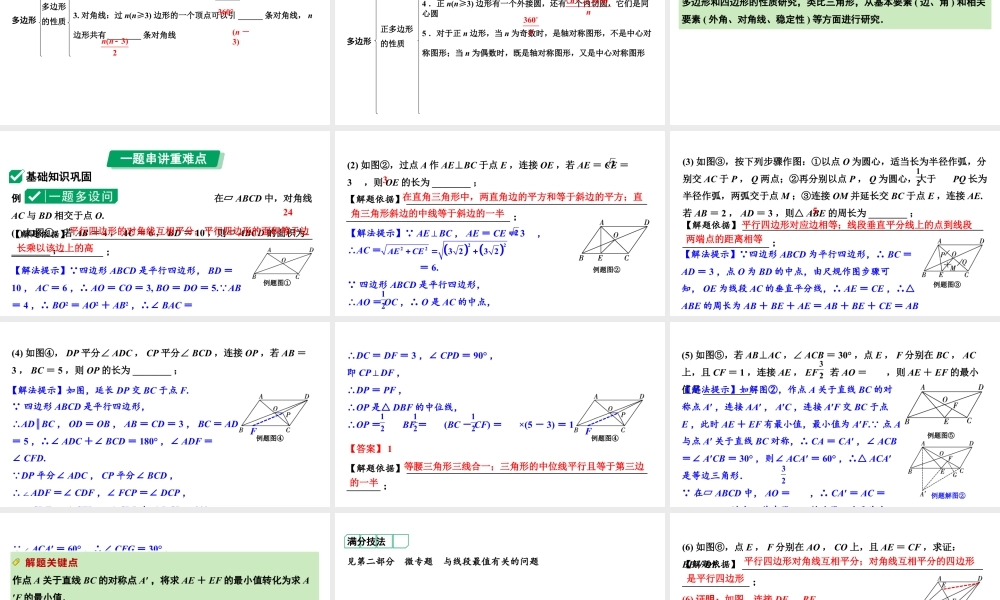 多边形
多边形的性质
3. 对角线：过 n(n≥3) 边形的一个顶点可以引 ______ 条对角线， n
边形共有 ________ 条对角线
(n－3)
n(n－3)
2
多边形
正多边形的性质
4．正 n(n≥3) 边形有一个外接圆，还有一个内切圆，它们是同心圆
360°
5．对于正 n 边形，当 n 为奇数时，是轴对称图形，不是中心对
称图形；当 n 为偶数时，既是轴对称图形，又是中心对称图形
多边形和四边形的性质研究，类比三角形，从基本要素 ( 边、角 ) 和相关
要素 ( 外角、对角线、稳定性 ) 等方面进行研究．
一题串讲重难点
基础知识巩固
例
一题多设问
在▱ ABCD 中，对角线
AC 与 BD 相交于点 O.
24
【解题依据】
平行四边形的对角线互相平分；平行四边形的面积等于边
长乘以该边上的高
；
【解法提示】∵四边形 ABCD 是平行四边形， BD ＝
10 ， AC ＝ 6 ，∴ AO ＝ CO ＝ 3, BO ＝ DO ＝ 5.∵AB
＝ 4 ，∴ BO² ＝ AO² ＋ AB² ，∴∠ BAC ＝
例题图①
(2) 如图②，过点 A 作 AE⊥BC 于点 E ，连接 OE ，若 AE ＝ CE ＝
3 ，则 OE 的长为 ________ ；
【解题依据】在直角三角形中，两直角边的平方和等于斜边的平方；直
角三角形斜边的中线等于斜边的一半 ；
【解法提示】∵ AE⊥BC ， AE ＝ CE ＝ 3 ，
∴AC ＝
＝ 6.
∵ 四边形 ABCD 是平行四边形，
∴AO ＝ OC ，∴ O 是 AC 的中点，
例题图②
(3) 如图③，按下列步骤作图：①以点 O 为圆心，适当长为半径作弧，分
别交 AC 于 P ， Q 两点；②再分别以点 P ， Q 为圆心，大于 1/2 PQ 长为
半径作弧，两弧交于点 M ；③连接 OM 并延长交 BC 于点 E ，连接 AE.
若 AB ＝ 2 ， AD ＝ 3 ，则△ ABE 的周长为 ________ ；
5
【解题依据】平行四边形对应边相等；线段垂直平分线上的点到线段
两端点的距离相等 ；
【解法提示】∵四边形 ABCD 为平行四边形，∴ BC ＝
AD ＝ 3 ，点 O 为 BD 的中点，由尺规作图步骤可
知， OE 为线段 AC 的垂直平分线，∴ AE ＝ CE ，∴△
ABE 的周长为 AB ＋ BE ＋ AE ＝ AB ＋ BE ＋ CE ＝ AB
例题图③
(4) 如图④， DP 平分∠ ADC ， CP 平分∠ BCD ，连接 OP ，若 AB ＝
3 ， BC ＝ 5 ，则 OP 的长为 ________ ；
【解法提示】如图，延长 DP 交 BC 于点 F.
∵ 四边形 ABCD 是平行四边形，
∴AD∥BC ， OD ＝ OB ， AB ＝ CD ＝ 3 ， BC ＝ AD
＝ 5 ，∴∠ ADC ＋∠ BCD ＝ 180° ，∠ ADF ＝
∠ CFD.
∵DP 平分∠ ADC ， CP 平分∠ BCD ，
∴∠ADF ＝∠ CDF ，∠ FCP ＝∠ DCP ，
例题图④
∴DC ＝ DF ＝ 3 ，∠ CPD ＝ 90° ，
即 CP⊥DF ，
∴DP ＝ PF ，
∴OP 是△ DBF 的中位线，
∴OP ＝ 1/2 BF ＝ 1/2 (BC － CF) ＝ 1/2 ×(5 － 3) ＝ 1
【答案】 1
【解题依据】等腰三角形三线合一；三角形的中位线平行且等于第三边
的一半 ；
例题图④
(5) 如图⑤，若 AB⊥AC ，∠ ACB ＝ 30° ，点 E ， F 分别在 BC ， AC
上，且 CF ＝ 1 ，连接 AE ， EF. 若 AO ＝ 3/2 ，则 AE ＋ EF 的最小
【解法提示】如解图②，作点 A 关于直线 BC 的对
称点 A′ ，连接 AA′ ， A′C ，连接 A′F 交 BC 于点
E ，此时 AE ＋ EF 有最小值，最小值为 A′F.∵ 点 A
与点 A′ 关于直线 BC 对称，∴ CA ＝ CA′ ，∠ ACB
＝∠ A′CB ＝ 30° ，则∠ ACA′ ＝ 60° ，∴△ ACA′
是等边三角形．
∵ 在▱ ABCD 中， AO ＝ 3/2 ，∴ CA′ ＝ AC ＝
例题图⑤
例题解图②
∵∠ ACA′ ＝ 60° ，∴∠ CFG ＝ 30°
解题关键点
作点 A 关于直线 BC 的对称点 A′ ，将求 AE ＋ EF 的最小值转化为求 A
′F 的最小值．
满分技法
见第二部分 微专题 与线段最值有关的问题
(6) 如图⑥，点 E ， F 分别在 AO ， CO 上，且 AE ＝ CF ，求证：
【解题依据】平行四边形对角线互相平分；对角线互相平分的四边形
是平行四边形 ；
(6) 证明：如图，连接 DE ， BF